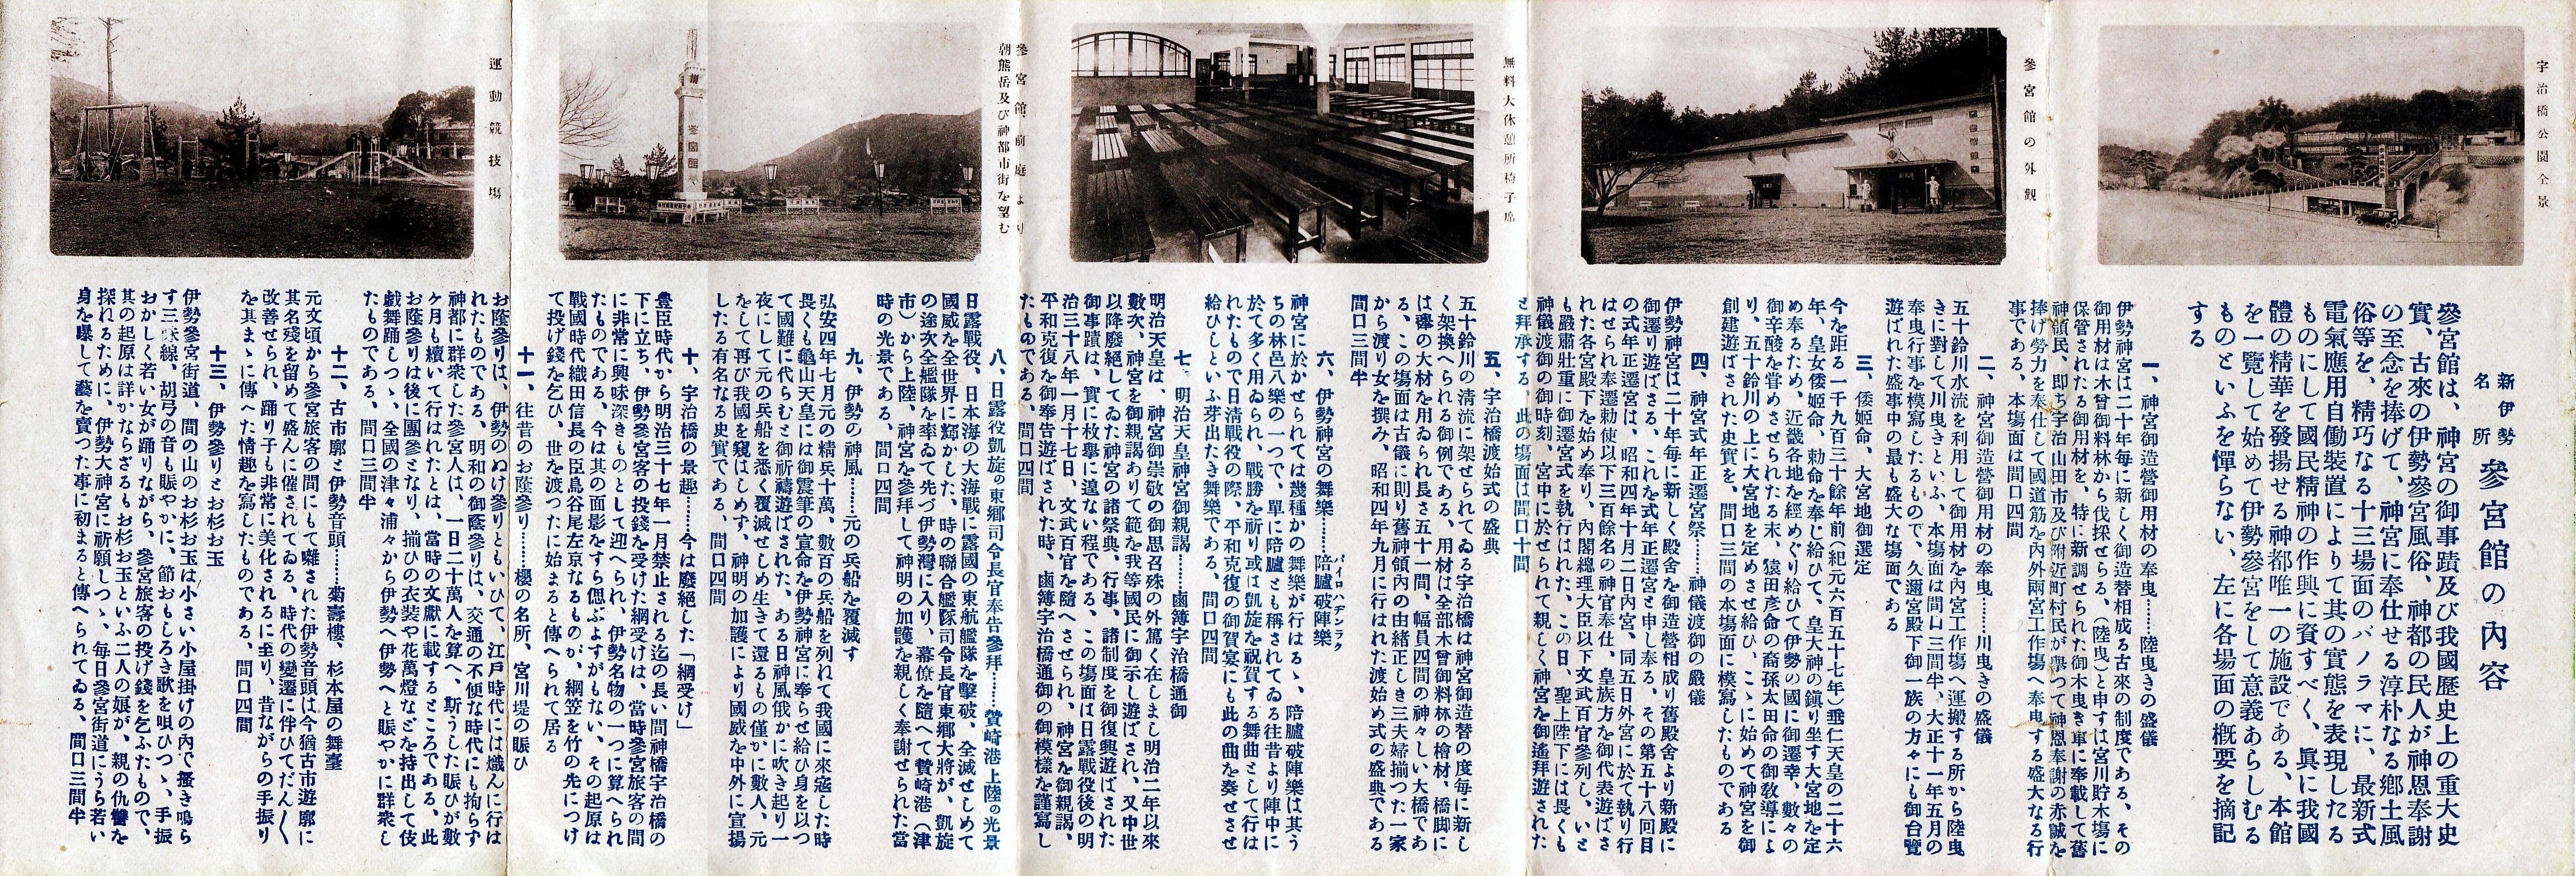 宇治橋公園全景
參宮館の外觀
無料大休憩所椅子席
參宮館前庭より
朝熊岳及び神都市街を望む
運動競技場
新伊勢
名所
參宮館の內容
參宮館は、神宮の御事蹟及び我國歷史上の重大史
實、古來の伊勢參宮風俗、神都の民人が神恩奉謝
の至念を捧げて、神宮に奉仕せる淳朴なる鄕土風
俗等を、精巧なる十三場面のパノラマに、最新式
電氣應用自働裝置によりて其の實態を表現したる
ものにして國民精神の作興に資すべく、眞に我國
體の精華を發揚せる神都唯一の施設である、本館
を一覽して始めて伊勢參宮をして意義あらしむる
ものといふを憚らない、左に各場面の槪要を摘記
する
一、神宮御造營御用材の奉曳……陸曳きの盛儀
伊勢神宮は二十年每に新しく御造替相成る古來の制度である、その
御用材は木曾御料林から伐採せらる、(陸曳)と申すは宮川貯木場に
保管されたる御用材を、特に新調せられた御木曳き車に奉載して舊
神領民、卽ち宇治山田市及び附近町村民が擧つて神恩奉謝の赤誠を
捧げ勞力を奉仕して國道筋を內外兩宮工作場へ奉曳する盛大なる行
事である。本場面は間口四間
二、神宮御造營御用材の奉曳……川曳きの盛儀
五十鈴川水流を利用して御用材を內宮工作場へ運搬する所から陸曳
きに對して川曳きといふ、本場面は間口三間半、大正十一年五月の
奉曳行事を模寫したるもので、久邇宮殿下御一族の方々にも御台覽
遊ばされた盛事中の最も盛大な場面である
三、倭姬命、大宮地御選定
今を距る一千九百三十餘年前(紀元六百五十七年)垂仁天皇の二十六
年、皇女倭姬命、勅命を奉じ給ひて、皇大神の鎭り坐す大宮地を定
め奉るため、近畿各地を經めぐり給ひて伊勢の國に御遷幸、數々の
御辛酸を甞めさせられたる末、猿田彥命の裔孫太田命の御敎導によ
り、五十鈴川の上に大宮地を定めさせ給ひ、こゝに始めて神宮を御
創建遊ばされた史實を、間口三間の本場面に模寫したものである
四、神宮式年正遷宮祭……神儀渡御の嚴儀
伊勢神宮は二十年每に新しく殿舍を御造營相成り舊殿舍より新殿に
御遷り遊ばさる、これを式年正遷宮と申し奉る、その第五十八回目
の式年正遷宮は、昭和四年十月二日內宮、同五日外宮に於て執り行
はせられ奉遷勅使以下三百餘名の神官奉仕、皇族方を御代表遊ばさ
れた各宮殿下を始め奉り、內閣總理大臣以下文武百官參列し、いと
も嚴肅壯重に御遷宮式を執行はれた、この日、聖上陛下には畏くも
神儀渡御の御時刻、宮中に於せられて親しく神宮を御遙拜遊された
と拜承する、此の場面は間口十間
五、宇治橋渡始式の盛典
五十鈴川の淸流に架せられてゐる宇治橋は神宮御造替の度每に新し
く架換へられる御例である、用材は全部木曾御料林の檜材、橋脚に
は欅の大材を用ゐられ長さ五十一間、幅員四間の神々しい大橋であ
る、この場面は古儀に則り舊神領內の由緖正しき三夫婦揃つた一家
から渡り女を撰み、昭和四年九月に行はれた渡始め式の盛典である
間口三間半
六、伊勢神宮の舞樂……陪臚破陣樂
バイロハヂンラク
神宮に於かせられては幾種かの舞樂が行はるゝ、陪臚破陣樂は其う
ちの林邑八樂の一つで、單に陪臚とも稱されてゐる往昔より陣中に
於て多く用ゐられ、戰勝を祈り或は凱旋を祝賀する舞曲として行は
れたもので日淸戰役の際、平和克復の御賀宴にも此の曲を奏せさせ
給ひしといふ芽出たき舞樂である、間口四間
七、明治天皇神宮御親謁……鹵簿宇治橋通御
明治天皇は、神宮御崇敬の御思召殊の外篤く在しまし明治二年以來
數次、神宮を御親謁ありて範を我等國民に御示し遊ばされ、又中世
以降廢絕してゐた神宮の諸祭典、行事、諸制度を御復興遊ばされた
御事蹟は、實に枚擧に遑ない程である、この場面は日露戰役後の明
治三十八年十一月十七日、文武百官を隨へさせられ、神宮を御親謁、
平和克復を御奉告遊ばされた時、鹵簿宇治橋通御の御模樣を謹寫し
たものである、間口四間
八、日露役凱旋の東鄕司令長官奉告參拜……贄崎港上陸の光景
日露戰役、日本海の大海戰に露國の東航艦隊を擊破、全滅せしめて
國威を全世界に輝かした、時の聯合艦隊司令長官東鄕大將が、凱旋
の途次全艦隊を率ゐて先づ伊勢灣に入り、幕僚を隨へて贄崎港(津
市)から上陸、神宮を參拜して神明の加護を親しく奉謝せられた當
時の光景である、間口四間
九、伊勢の神風……元の兵船を覆滅す
弘安四年七月元の精兵十萬、數百の兵船を列ねて我國に來寇した時
畏くも龜山天皇には御宸筆の宣命を伊勢神宮に奉らせ給ひ身を以つ
て國難に代らむと御祈禱遊ばされた、ある日神風俄かに吹き起り一
夜にして元の兵船を悉く覆滅せしめ生きて還るもの僅かに數人、元
をして再び我國を窺はしめず、神明の加護により國威を中外に宣揚
したる有名なる史實である、間口四間
十、宇治橋の景趣……今は廢絕した「網受け」
豐臣時代から明治三十七年一月禁止される迄の長い間神橋宇治橋の
下に立ち、伊勢參宮客の投錢を受けた網受けは、當時參宮旅客の間
に非常に興味深きものとして迎へられ、伊勢名物の一つに算へられ
たものである、今は其の面影をすら偲ぶよすがもない、その起原は
戰國時代織田信長の臣鳥谷尾左京なるものが、網笠を竹の先につけ
て投げ錢を乞ひ、世を渡つたに始まると傳へられて居る
十一、往昔のお蔭參り……櫻の名所、宮川堤の賑ひ
お蔭參りは、伊勢のぬけ參りともいひて、江戶時代には熾んに行は
れたものである、明和の御蔭參りは、交通の不便な時代にも拘らず
神都に群衆した參宮人は、一日二十萬人を算へ、斯うした賑ひが數
ケ月も續いて行はれたとは、當時の文獻に載するところである、此
お蔭參りは後に團參となり、揃ひの衣裝や花萬燈などを持出して伎
戲舞踊しつゝ、全國の津々浦々から伊勢へ伊勢へと賑やかに群衆し
たものである、間口三間半
十二、古市廓と伊勢音頭……菊壽樓、杉本屋の舞臺
元文頃から參宮旅客の間にもて囃された伊勢音頭は今猶古市遊廓に
其名殘を留めて盛んに催されてゐる、時代の變遷に伴ひてだん〳〵
改善せられ、踊り子も非常に美化されるに至り、昔ながらの手振り
を其まゝに傳へた情趣を寫したものである、間口四間
十三、伊勢參りとお杉お玉
伊勢參宮街道、間の山のお杉お玉は小さい小屋掛けの內で搔き鳴ら
す三味線、胡弓の音も賑やかに、節おもしろき歌を唄ひつゝ、手振
おかしく若い女が踊りながら、參宮旅客の投げ錢を乞ふたもので、
其の起原は詳かならざるもお杉お玉といふ二人の娘が、親の仇讐を
探れるために、伊勢大神宮に祈願しつゝ、每日參宮街道にうら若い
身を曝して藝を賣つた事に初まると傳へられてゐる、間口三間半